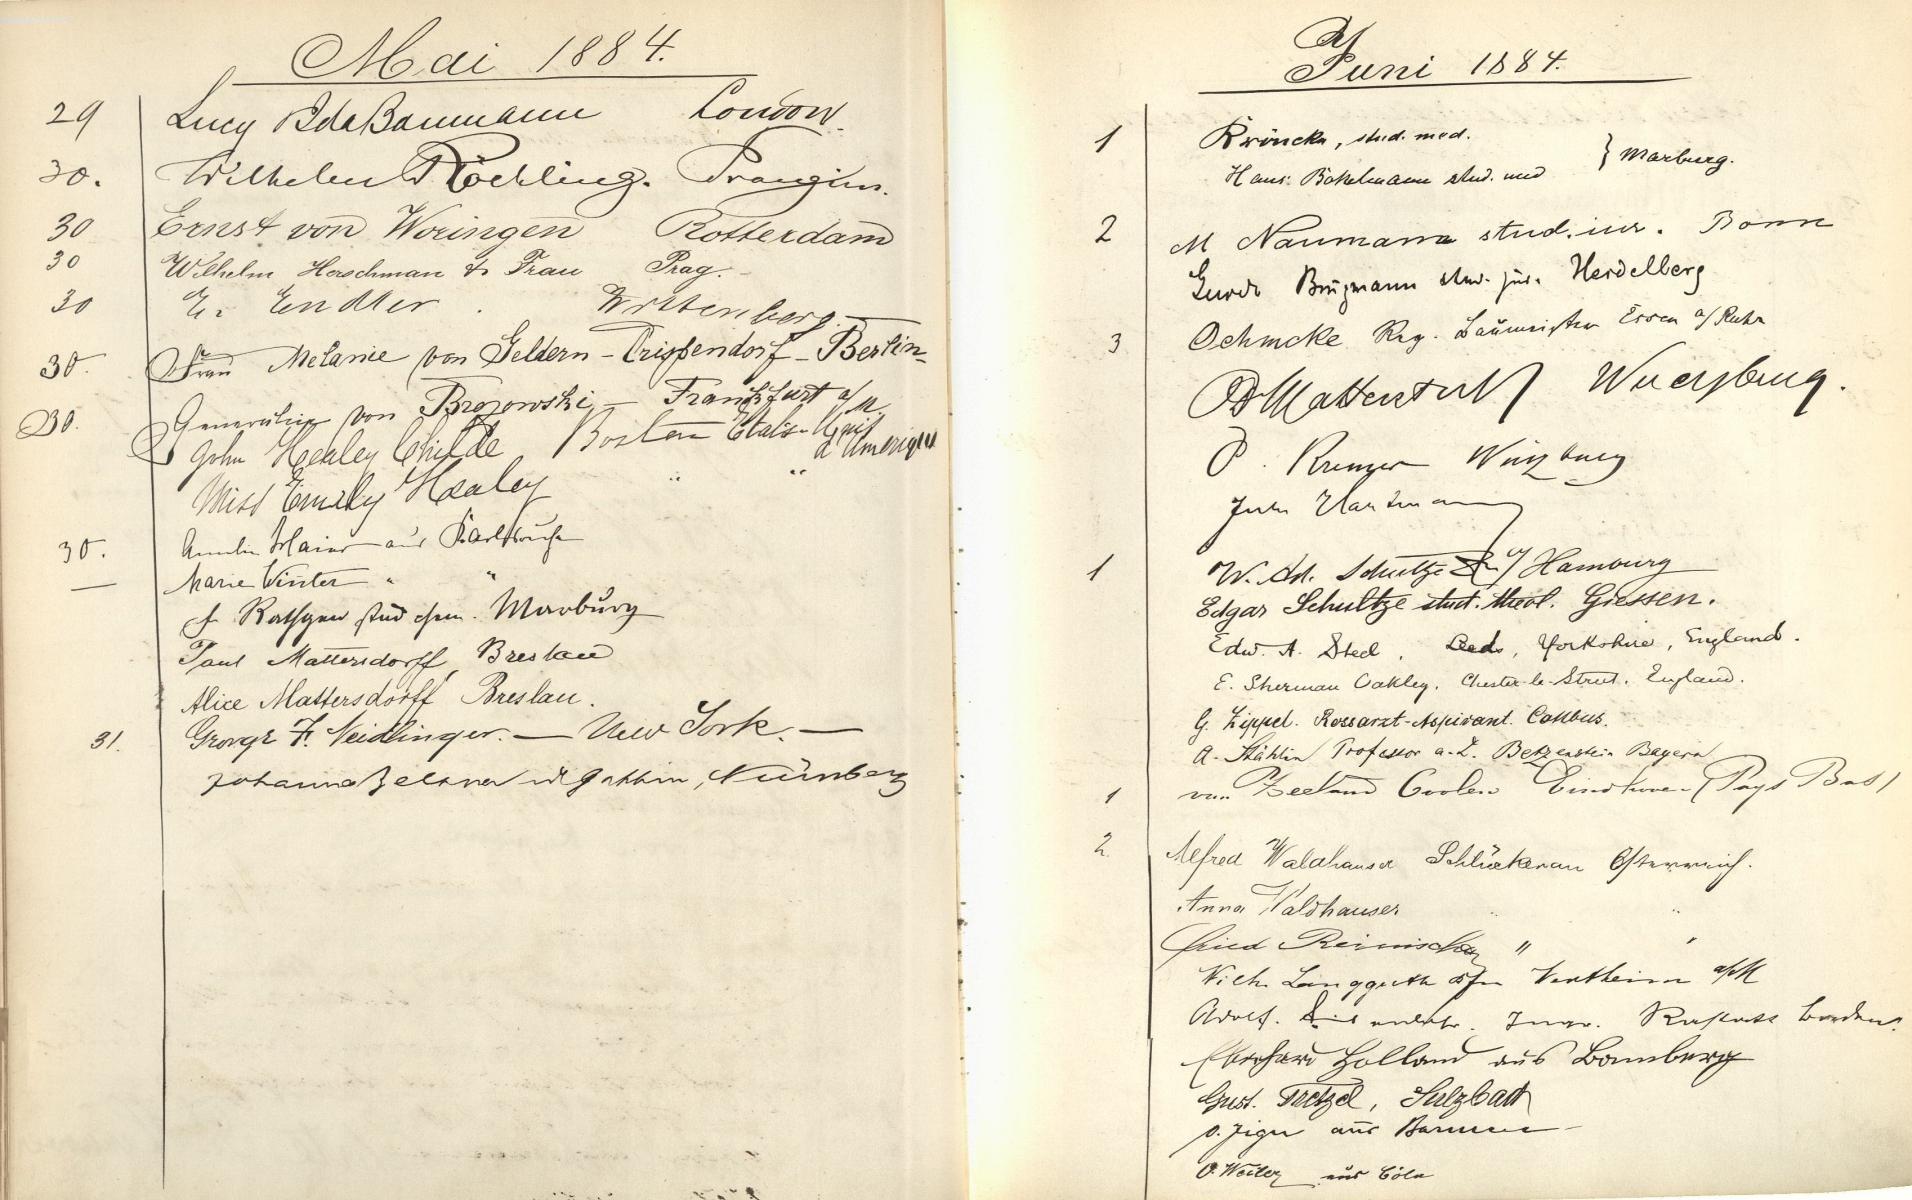 Mai 1884.
29 Lucy Ida Baumann London.
30. Wilhelm Röchling. Prangins.
30 Ernst von Woringen Rotterdam
30 Wilhelm Horschman & Frau Prag.
30 E. Endler. Wittenberg.
30. Frau Melanie von Geldern-Crispendorf-Berlin-
Generalin von Brozowski - Frankfurt a/M.
30. John Healey Childe Boston Etats-Unis
d'Amerique
Miss Emily Healey " "
30. Amelie Maier aus Karlsruhe
— Marie Winter " "
Rathgen stud chem. Marburg
Paul Mattersdorff, Breslau
Alice Mattersdorff, Breslau.
31. George F. Neidlinger. — New York. —
Johanna Zeltner Nürnberg
Juni 1884.
1 Kröncke, stud. med.
Hans Bokelmann stud. med } Marburg.
2 M Naumann stud. iur. Bonn
Brügmann stud. jur. Heidelberg
3 Oehmcke Reg. Baumeister Essen a/Ruhr
Wuerzburg.
Würzburg
Hartmann
1 W. Ad. Schultze Hamburg
Edgar Schultze stud. theol. Giessen.
Edw. A. Steel, Leeds, Yorkshire, England.
E. Sherman Oakley. Chester-le-Street. England.
G. Zippel. Rossarzt-Aspirant. Cottbus.
A. Stählin Professor a. D. Betzenstein Bayern
1 van Zeeland Coolen Eindhoven (Pays Bas)
2. Alfred Waldhauser Schluckenau Österreich.
Anna Waldhauser " "
" "
Wilh. Langguth Wertheim a/M
Adolf. Rastatt Baden.
Eberhard Holland aus Bamberg
Gust. Tretzel, Sulzbach
aus Barmen
O. Weiler aus Cöln